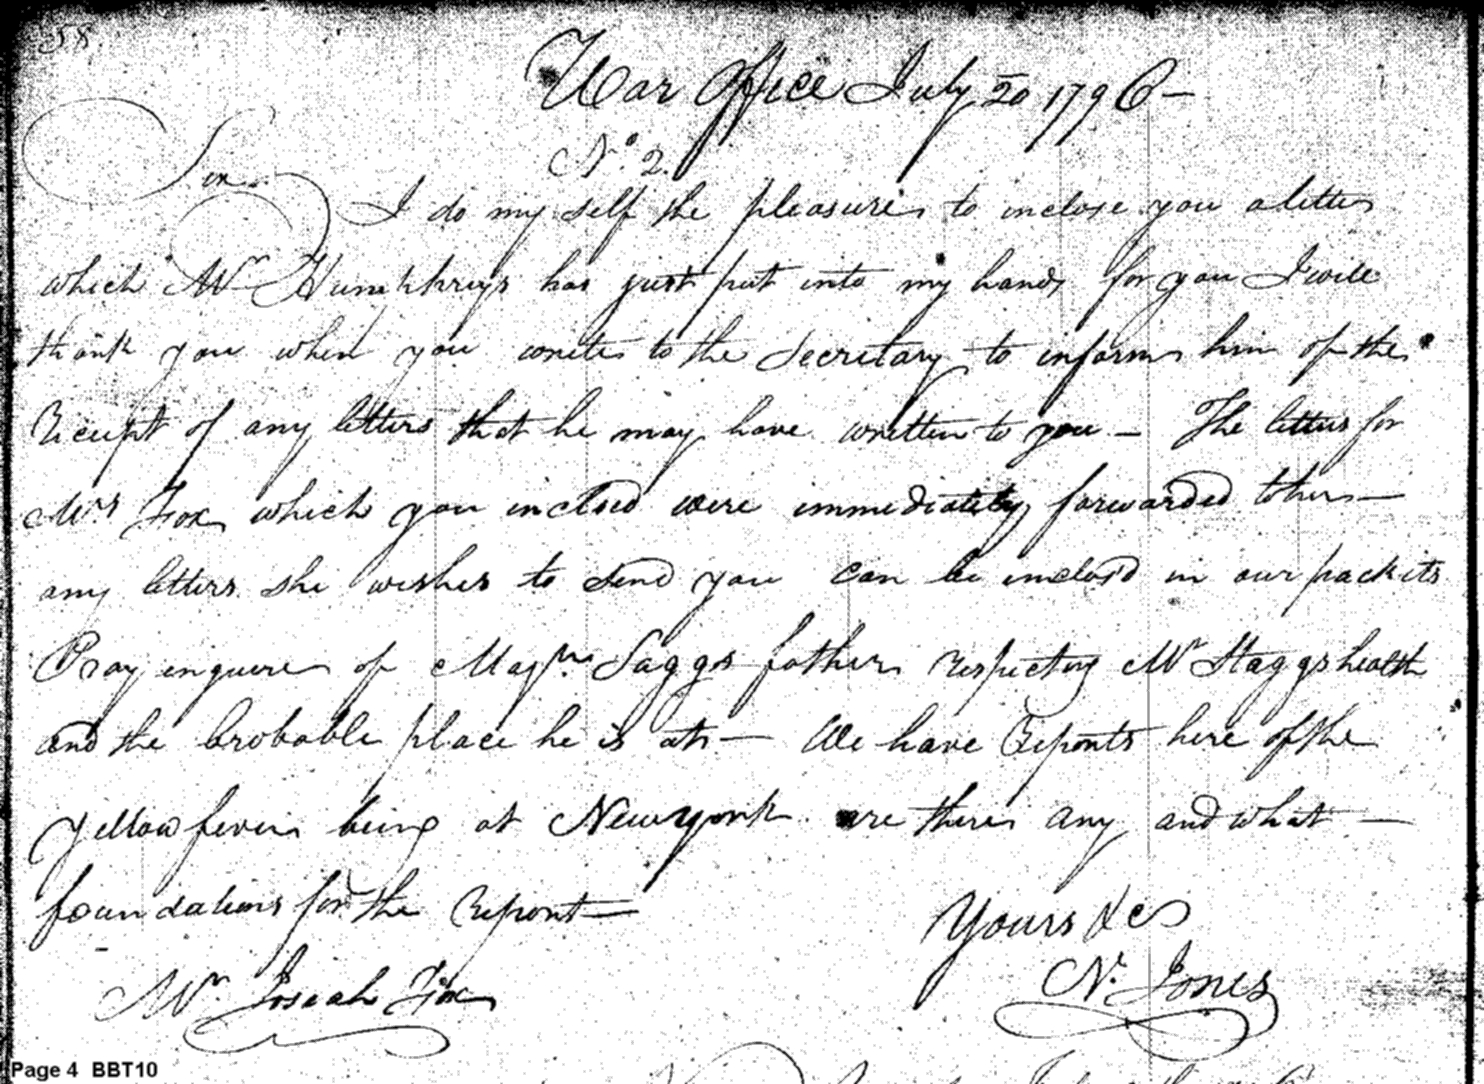 58
War Office July 20 1796 —
No. 2.
Sir
I do my self the pleasure to inclose you a letter
which Mr Humphreys has just put into my hands for you I will
thank you when you write to the Secretary to inform him of the
Receipt of any letters that he may have written to you — The letters for
Mrs Fox which you inclosed were immediately forwarded to her —
any letters she wishes to send you can be inclos'd in our packits
Pray enquire of Saggs father respecting Mr Staggs health
and the probable place he is at — We have Reports here of the
Yellow fever being at New york are there any and what —
foundations for the Report —
Yours &c
N. Jones
Mr. Josiah Fox
Page 4 BBT10